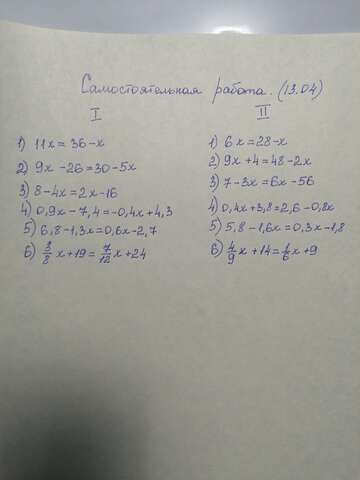 Самостоятельная работа. (13.04)
I
1) 11x = 36 - x
2) 9x - 26 = 30 - 5x
3) 8 - 4x = 2x - 16
4) 0,9x - 7,4 = -0,4x + 4,3
5) 6,8 - 1,3x = 0,6x - 2,7
6) 3/8 x + 19 = 7/12 x + 24
II
1) 6x = 28 - x
2) 9x + 4 = 48 - 2x
3) 7 - 3x = 6x - 56
4) 0,4x + 3,8 = 2,6 - 0,8x
5) 5,8 - 1,6x = 0,3x - 1,8
6) 4/9 x + 14 = 1/6 x + 9